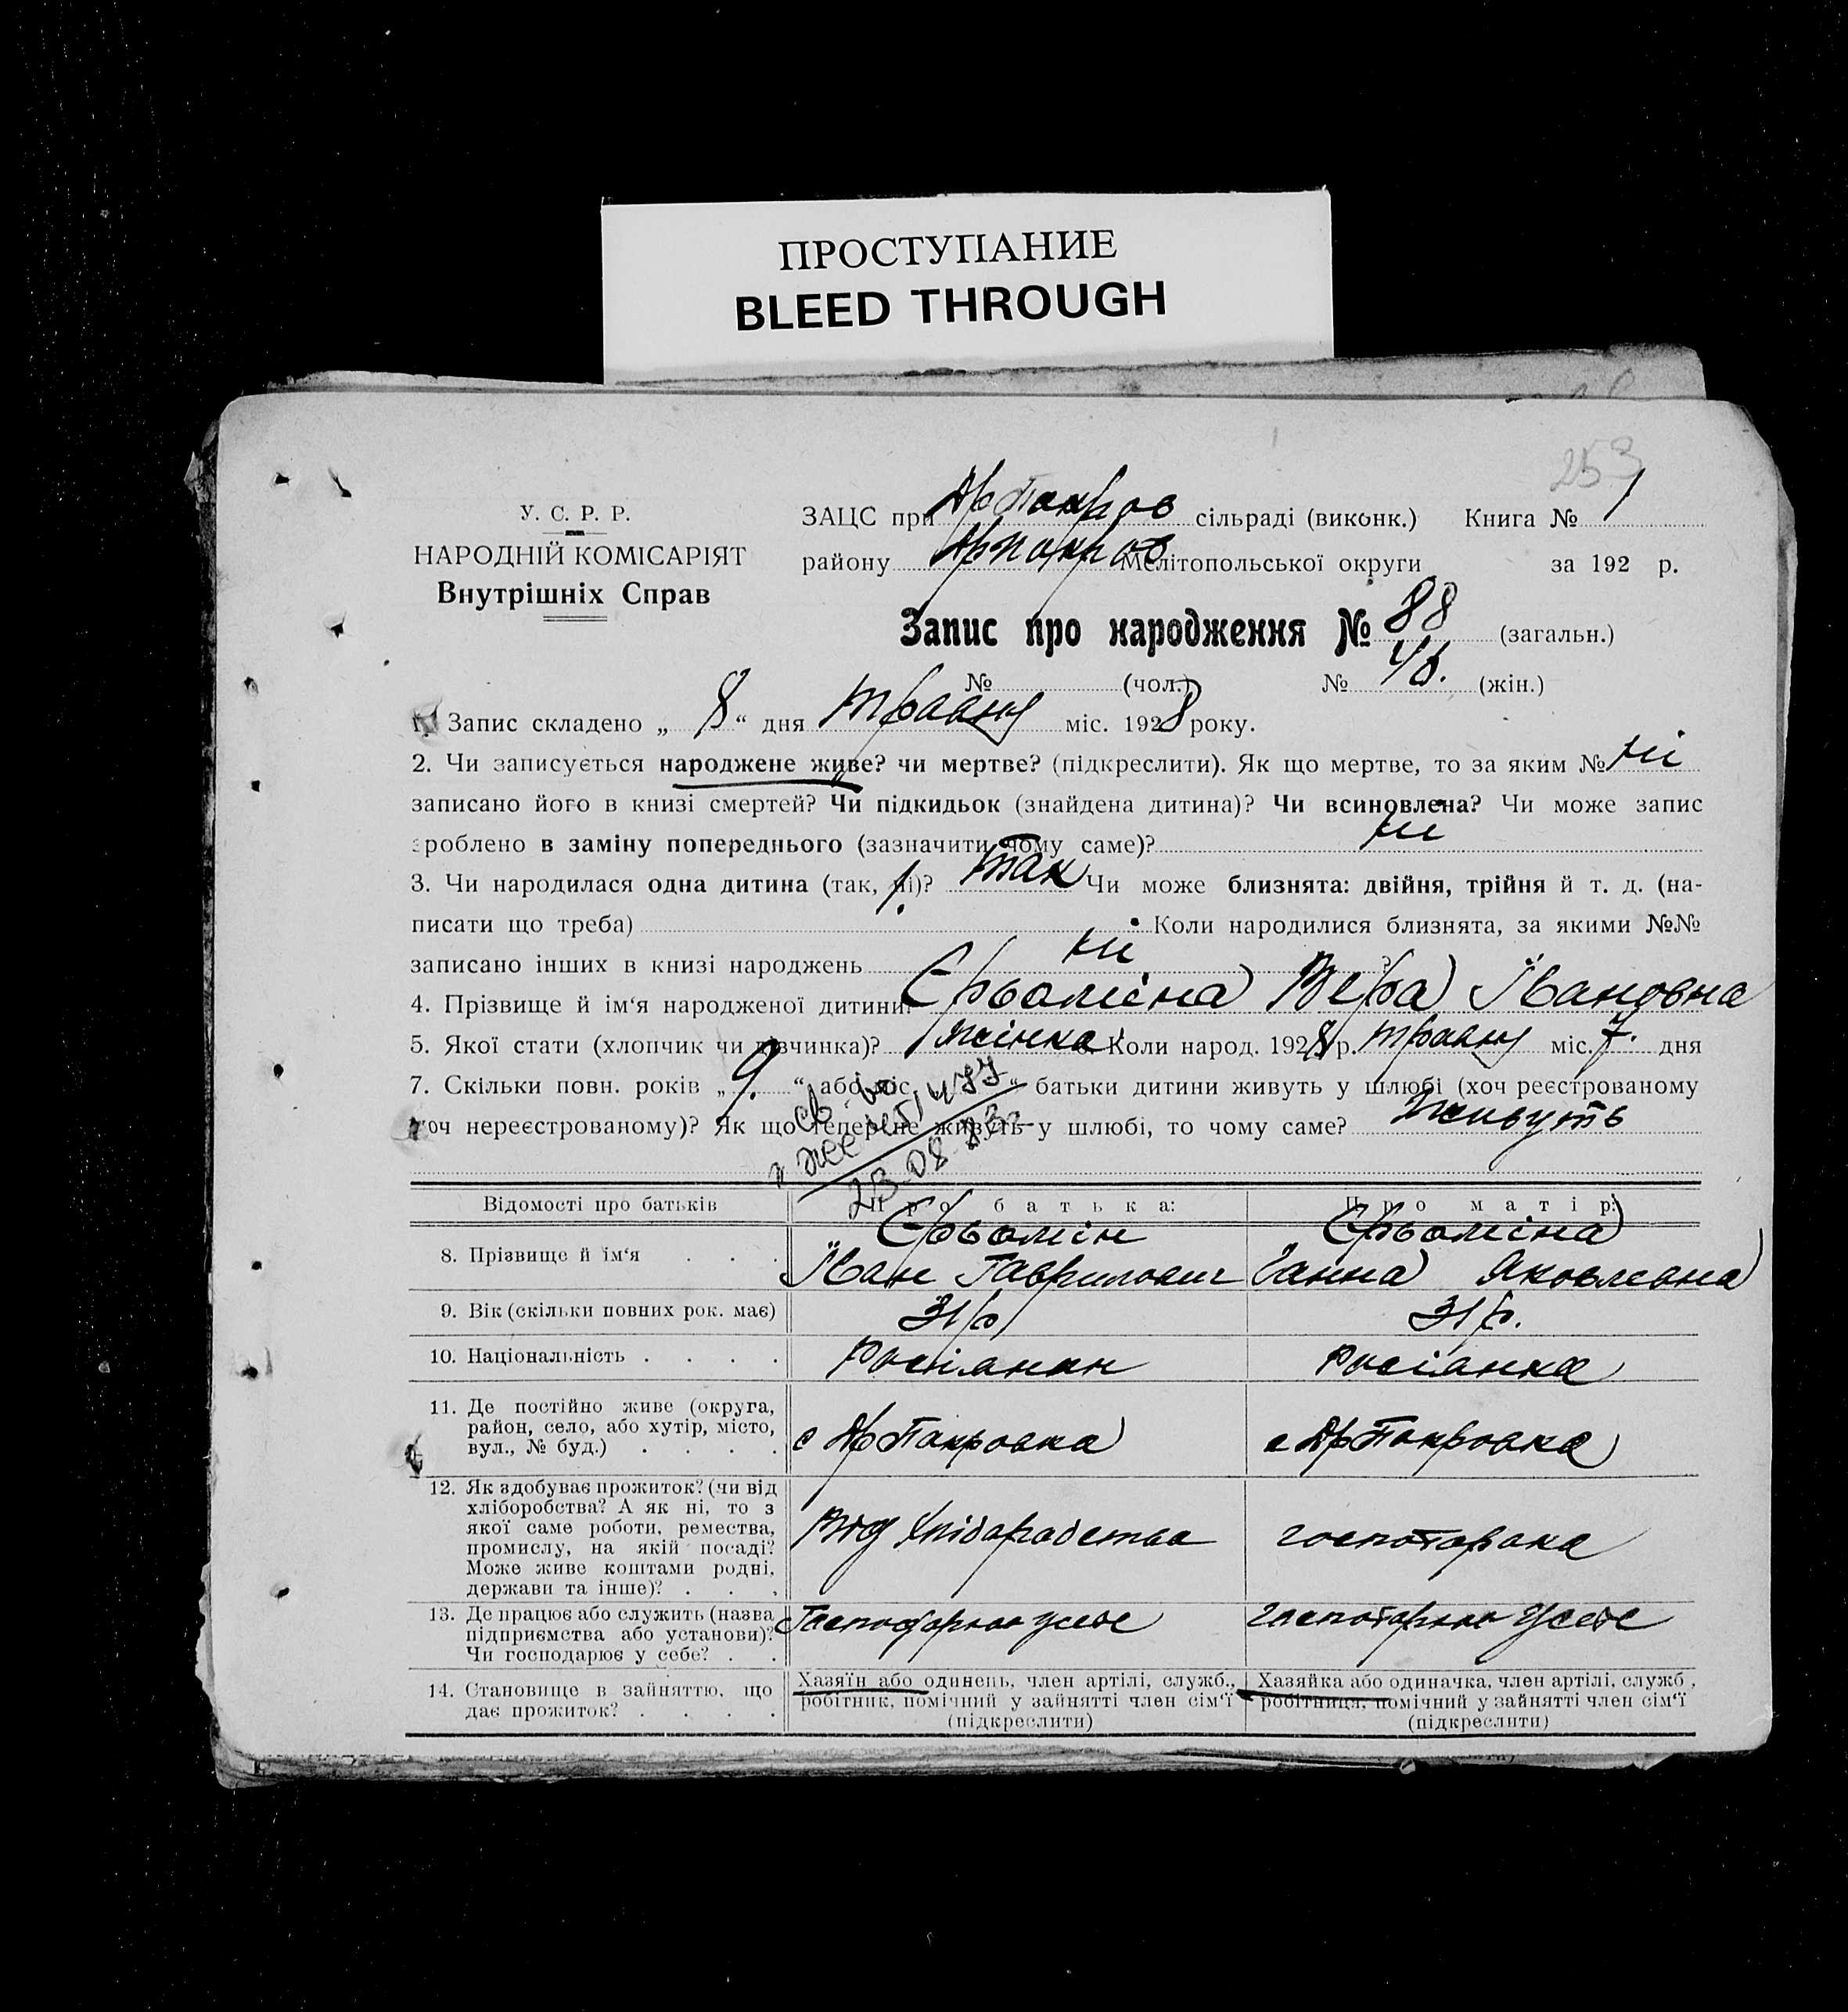 ПРОСТУПАНИЕ
BLEED THROUGH
253
У. С. Р. Р.
НАРОДНІЙ КОМІСАРІЯТ
Внутрішніх Справ
ЗАЦС при Ар Покров сільраді (виконк.) Книга № 1
району Ар Покров Мелітопольської округи за 192 р.
Запис про народження № 88 (загальн.)
№ (чол.) № 46. (жін.)
1. Запис складено „ 8 “ дня травня міс. 1928 року.
2. Чи записується народжене живе? чи мертве? (підкреслити). Як що мертве, то за яким № ні
записано його в книзі смертей? Чи підкидьок (знайдена дитина)? Чи всиновлена? Чи може запис
зроблено в заміну попереднього (зазначити чому саме)? ні
3. Чи народилася одна дитина (так, ні)? так Чи може близнята: двійня, трійня й т. д. (на-
писати що треба) Коли народилися близнята, за якими №№
записано інших в книзі народжень ні ?
4. Прізвище й ім‘я народженої дитини: Єрьоміна Вера Івановна
5. Якої стати (хлопчик чи дівчинка)? жінка 6. Коли народ. 1928 р. травня міс. 7. дня
7. Скільки повн. років „ 9. “ або міс. “ батьки дитини живуть у шлюбі (хоч реєстрованому
хоч нереєстрованому)? Як що тепер не живуть у шлюбі, то чому саме? Живуть
23.08.83
Відомості про батьків Про батька: Про матір:
8. Прізвище й ім‘я . . . Єрьомін Іван Гаврилович Єрьоміна Ганна Яковлевна
9. Вік (скільки повних рок. має) 31 р. 31 р.
10. Національність . . . . Росіянин Росіянка
11. Де постійно живе (округа,
район, село, або хутір, місто,
вул., № буд.) . . . . с Ар Покровка с Ар Покровка
12. Як здобуває прожиток? (чи від
хліборобства? А як ні, то з
якої саме роботи, ремества,
промислу, на якій посаді?
Може живе коштами родні,
держави та інше)? . . . Від Хліборобства господарка
13. Де працює або служить (назва
підприємства або установи)?
Чи господарює у себе? . . Господарює у себе господарює у себе
14. Становище в зайняттю, що
дає прожиток? . . . .
Хазяїн або одинець, член артілі, служб.,
робітник, помічний у зайнятті член сім‘ї
(підкреслити)
Хазяйка або одиначка, член артілі, служб.,
робітниця, помічний у зайнятті член сім‘ї
(підкреслити)